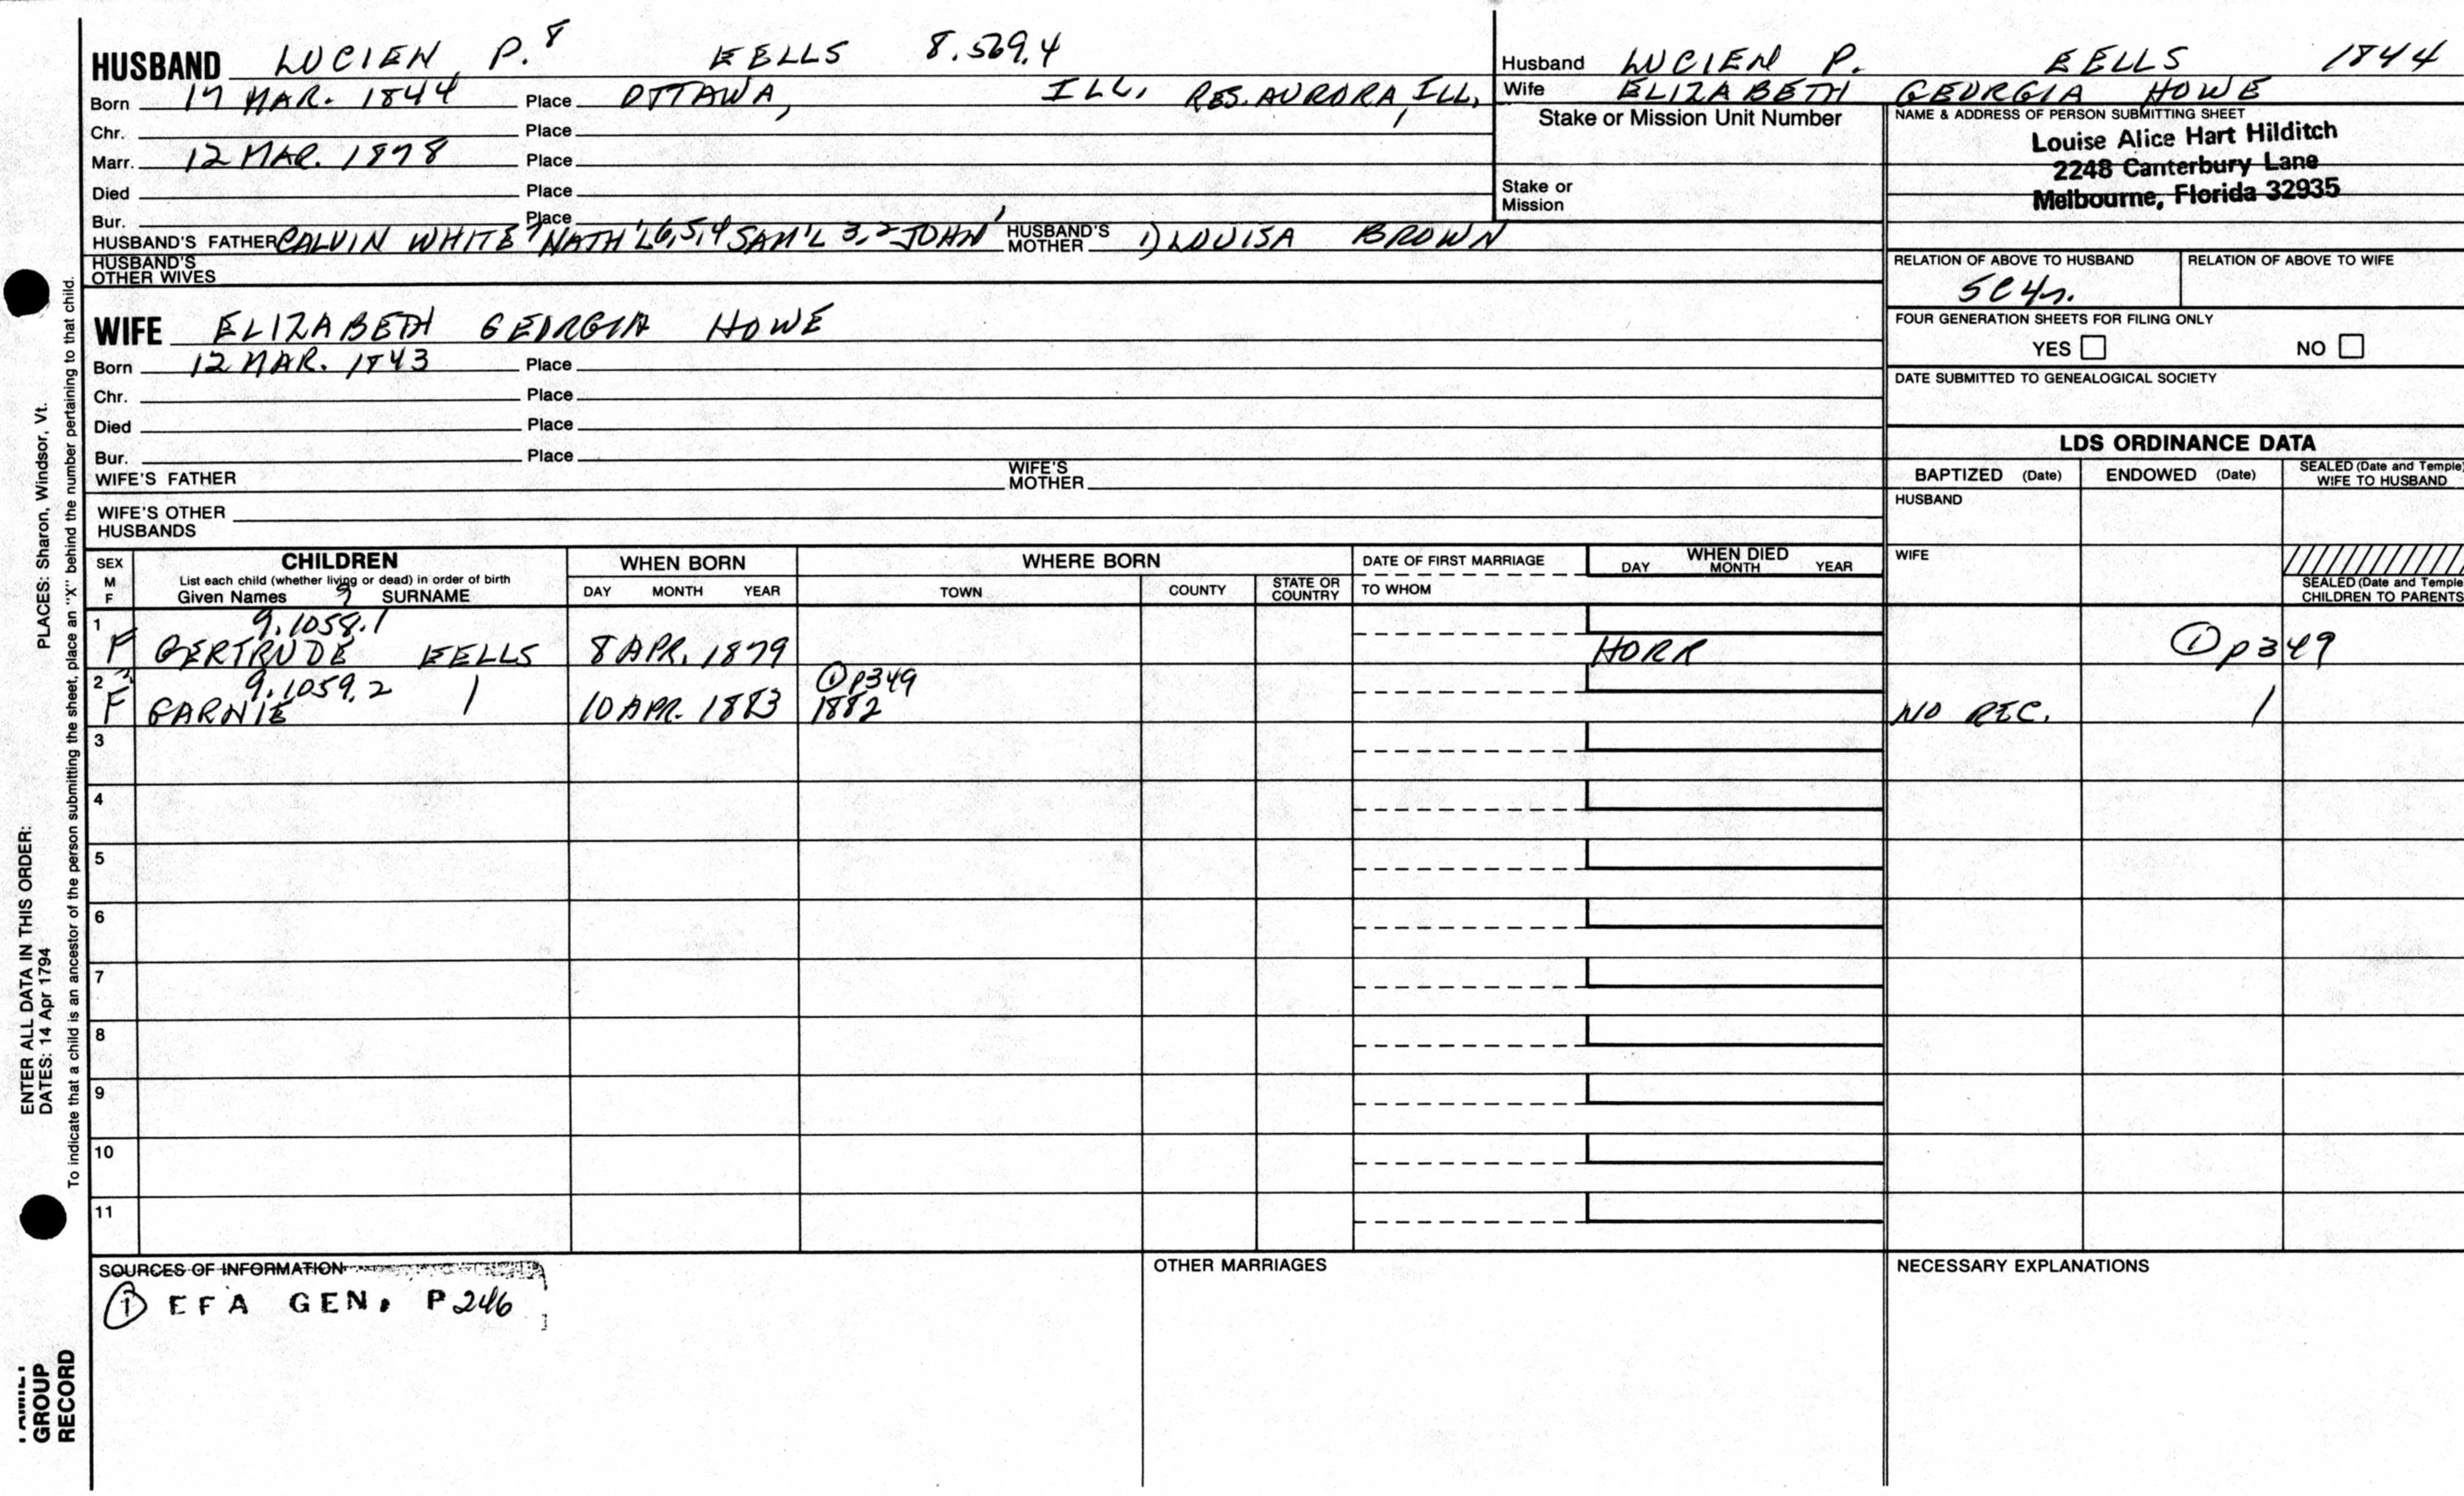 HUSBAND LUCIEN P.8 EELLS 8.569.4
Born 17 MAR. 1844 Place OTTAWA, ILL. RES. AURORA, ILL.
Chr. Place
Marr. 12 MAR. 1878 Place
Died Place
Bur. Place
HUSBAND'S FATHER CALVIN WHITE7 NATH'L6,5,4 SAM'L 3,2 JOHN1 HUSBAND'S MOTHER 1) LOUISA BROWN
HUSBAND'S OTHER WIVES
Husband LUCIEN P. EELLS 1844
Wife ELIZABETH GEORGIA HOWE
Stake or Mission Unit Number
Stake or Mission
NAME & ADDRESS OF PERSON SUBMITTING SHEET
Louise Alice Hart Hilditch
2248 Canterbury Lane
Melbourne, Florida 32935
RELATION OF ABOVE TO HUSBAND RELATION OF ABOVE TO WIFE
5C4r.
FOUR GENERATION SHEETS FOR FILING ONLY
YES NO
DATE SUBMITTED TO GENEALOGICAL SOCIETY
WIFE ELIZABETH GEORGIA HOWE
Born 12 MAR. 1843 Place
Chr. Place
Died Place
Bur. Place
WIFE'S FATHER WIFE'S MOTHER
WIFE'S OTHER HUSBANDS
LDS ORDINANCE DATA
BAPTIZED (Date) ENDOWED (Date) SEALED (Date and Temple) WIFE TO HUSBAND
HUSBAND
WIFE
SEALED (Date and Temple CHILDREN TO PARENTS
SEX M F
CHILDREN
List each child (whether living or dead) in order of birth
Given Names 9 SURNAME
WHEN BORN
DAY MONTH YEAR
WHERE BORN
TOWN COUNTY STATE OR COUNTRY
DATE OF FIRST MARRIAGE
TO WHOM
WHEN DIED
DAY MONTH YEAR
1 9.1058.1
F GERTRUDE EELLS 8 APR. 1879 HORR ① p349
2 9.1059.2 ① p349
F GARNIE 10 APR. 1883 1882 NO REC.
3
4
5
6
7
8
9
10
11
SOURCES OF INFORMATION
① EFA GEN. P246
OTHER MARRIAGES
NECESSARY EXPLANATIONS
ENTER ALL DATA IN THIS ORDER:
DATES: 14 Apr 1794 PLACES: Sharon, Windsor, Vt.
To indicate that a child is an ancestor of the person submitting the sheet, place an "X" behind the number pertaining to that child.
FAMILY
GROUP
RECORD